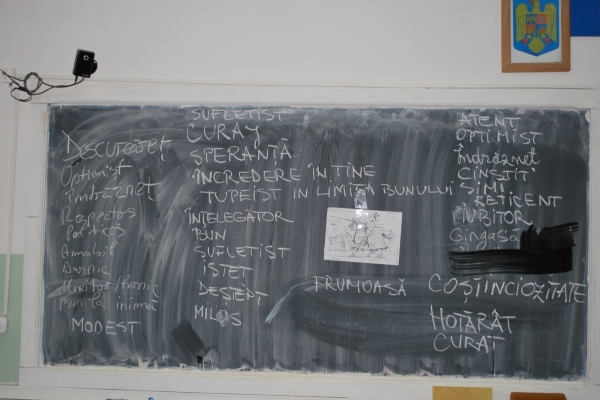 Descurcăreț
Optimist
Îndrăzneț
Respectos
Politicos
Amabil
Darnic
Muncitor/harnic
Bun la inimă
MODEST
SUFLETIST
CURAJ
SPERANȚĂ
ÎNCREDERE ÎN TINE
TUPEIST ÎN LIMITA BUNULUI SIMȚ
ÎNȚELEGĂTOR
BUN
SUFLETIST
ISTEȚ
DEȘTEPT
MILOS
FRUMOASĂ
ATENT
OPTIMIST
Îndrăzneț
CINSTIT
RETICENT
IUBITOR
Gingașă
COȘTIINCIOZITATE
HOTĂRÂT
CURAT